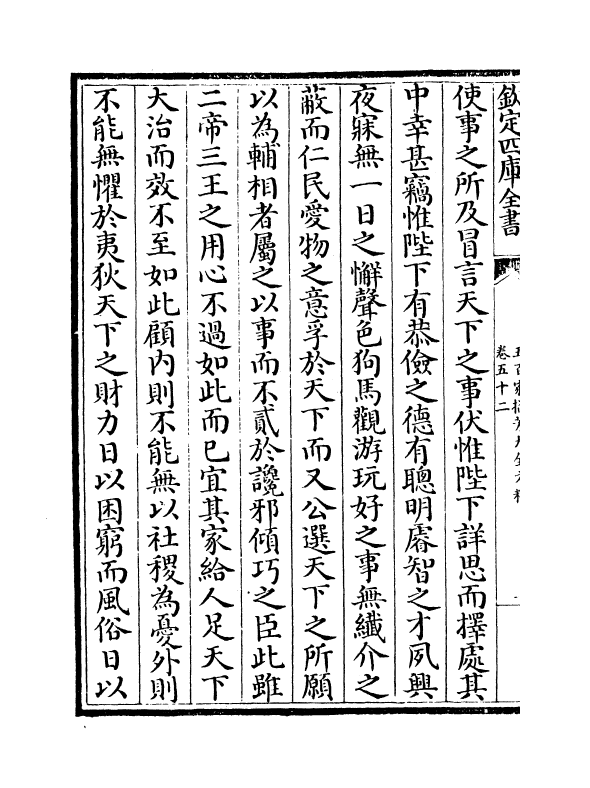 欽定四庫全書
卷五十二
使事之所及冒言天下之事伏惟陛下詳思而擇處其
中幸甚竊惟陛下有恭儉之德有聰明睿智之才夙興
夜寐無一日之懈聲色狗馬觀游玩好之事無纖介之
蔽而仁民愛物之意孚於天下而又公選天下之所願
以為輔相者屬之以事而不貳於讒邪傾巧之臣此雖
二帝三王之用心不過如此而已宜其家給人足天下
大治而效不至如此顧內則不能無以社稷為憂外則
不能無懼於夷狄天下之財力日以困窮而風俗日以